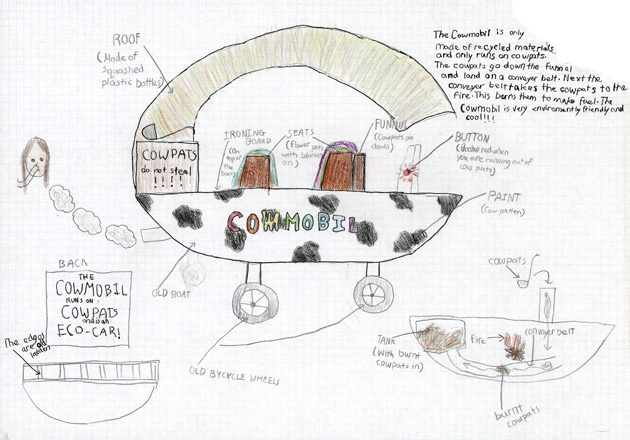 The Cowmobil is only
made of recycled materials
and only runs on cowpats.
The cowpats go down the funnal
and land on a conveyer belt. Next the
conveyer belt takes the cowpats to the
fire. This burns them to make fuel. The
Cowmobil is very enviromently friendly and
cool!!!
ROOF
(Made of
squashed
plastic bottles)
IRONING
BOARD
(On
top of
the boat)
SEATS
(Flower pots
with blankets
on)
FUNNUL
(Cowpats go
down)
BUTTON
(flashes red when
you are running out of
cow pats)
COWPATS
do not steal
!!!!
PAINT
(Cow patten)
COWMOBIL
OLD BOAT
OLD BYCYCLE WHEELS
BACK
THE
COWMOBIL
RUNS ON
COWPATS
and is an
ECO-CAR!
The edges
are old
cowpats
TANK
(With burnt
cowpats in)
fire
conveyer belt
burnt
cowpats